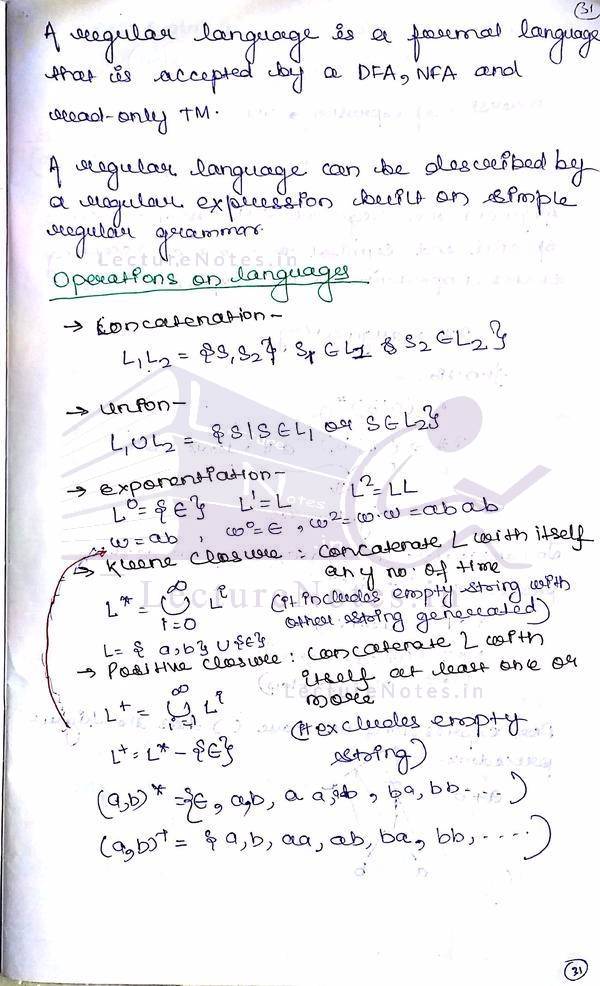 31
A regular language is a formal language
that is accepted by a DFA, NFA and
read-only TM.
A regular language can be described by
a regular expression built on simple
regular grammar.
LectureNotes.in
Operations on languages
→ Concatenation -
L₁L₂ = {S₁S₂}. S₁ ∈ L1 & S₂ ∈ L₂}
→ Union-
L₁∪L₂ = {S|S∈L₁ or S∈L₂}
→ exponentiation-
L⁰={∈} L¹=L L²=LL
ω=ab, ω⁰=∈, ω²=ω·ω=abab
→ Kleene Closure : Concatenate L with itself
any no. of time
L* = ∪ Lⁱ (it includes empty string with
∞
i=0
other string generated)
LectureNotes.in
L= { a,b} ∪{∈}
→ Positive closure : concatenate L with
itself at least one or
more
LectureNotes.in
L⁺ = ∪ Lⁱ
∞
i=1
(It excludes empty
L⁺=L*-{∈} string)
(a,b)* ={∈, a,b, aa,ab, ba, bb--- )
(a,b)⁺ = { a,b, aa, ab, ba, bb, ....)
31